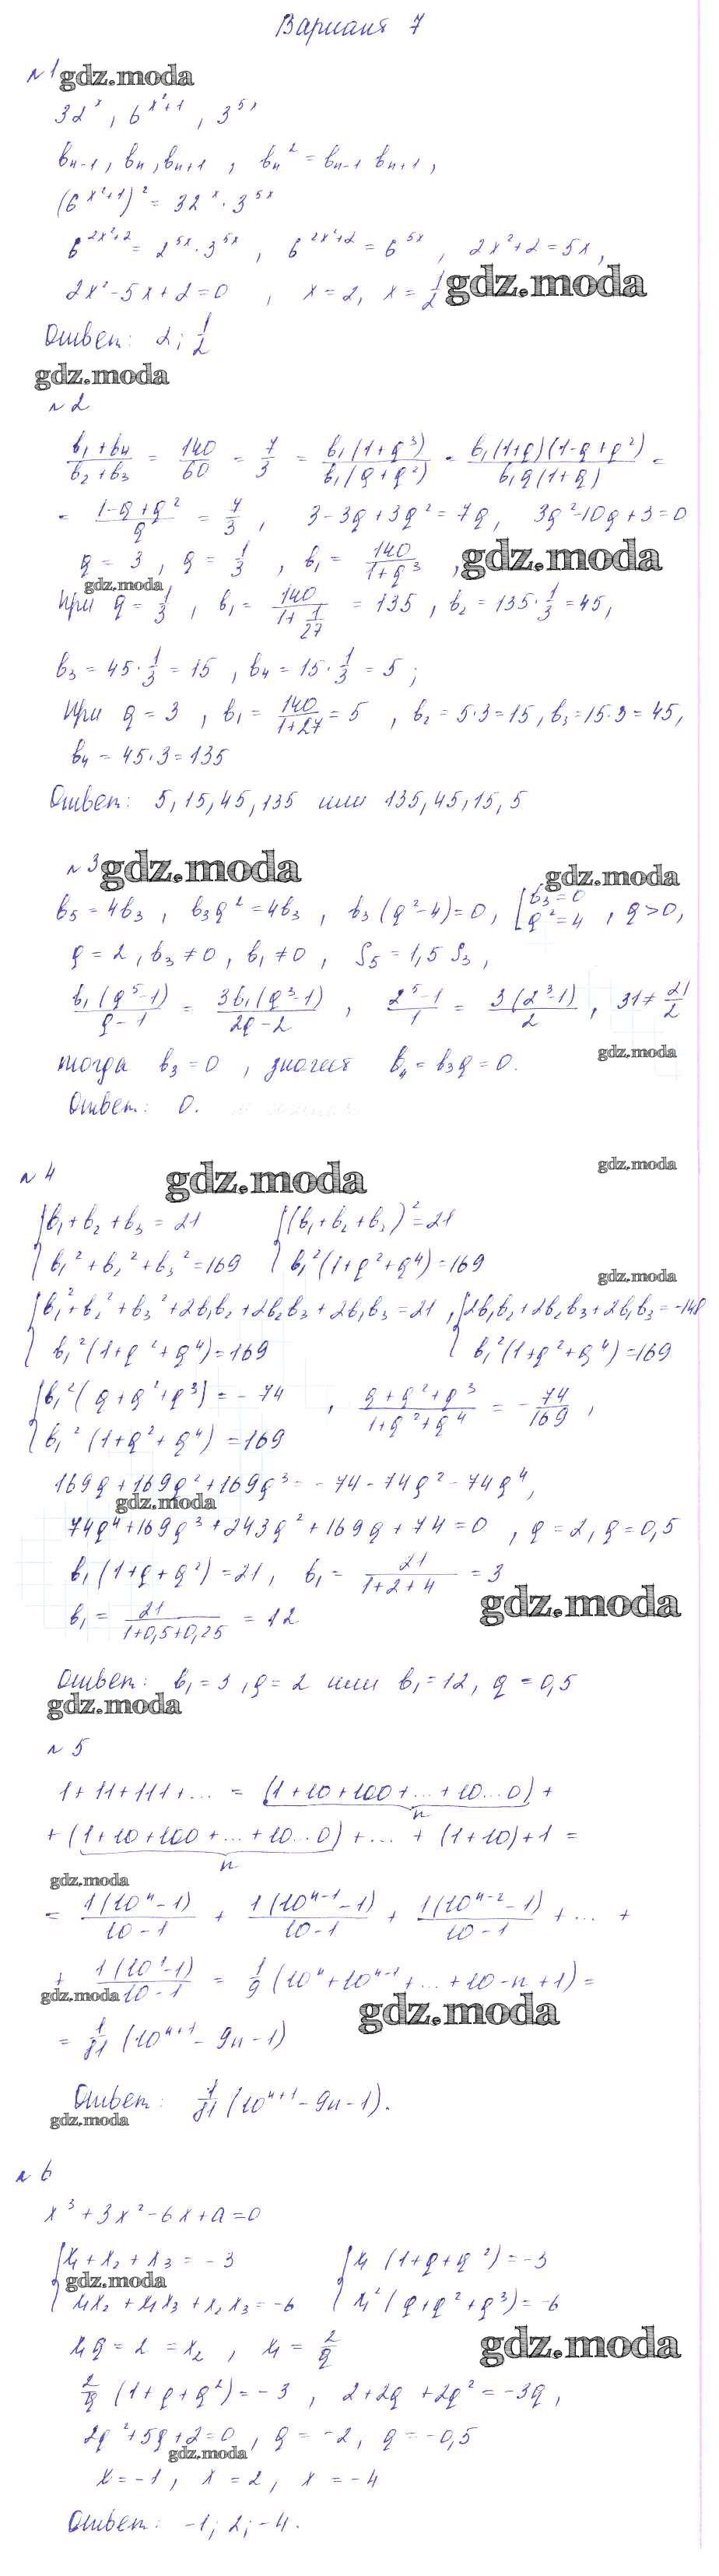 Вариант 7
№1 gdz.moda
32^x, 6^{x²+1}, 3^{5x}
b_{n-1}, b_n, b_{n+1}, b_n² = b_{n-1} b_{n+1},
(6^{x²+1})² = 32^x · 3^{5x}
6^{2x²+2} = 2^{5x} · 3^{5x}, 6^{2x²+2} = 6^{5x}, 2x²+2=5x,
2x²-5x+2=0, x=2, x=1/2 gdz.moda
Ответ: 2; 1/2
gdz.moda
№2
(b₁+b₄)/(b₂+b₃) = 140/60 = 7/3 = b₁(1+q³)/b₁(q+q²) = b₁(1+q)(1-q+q²)/b₁q(1+q) =
= (1-q+q²)/q = 7/3, 3-3q+3q²=7q, 3q²-10q+3=0
q=3, q=1/3, b₁=140/(1+q³), gdz.moda
gdz.moda
При q=1/3, b₁=140/(1+1/27)=135, b₂=135·1/3=45,
b₃=45·1/3=15, b₄=15·1/3=5;
При q=3, b₁=140/(1+27)=5, b₂=5·3=15, b₃=15·3=45,
b₄=45·3=135
Ответ: 5, 15, 45, 135 или 135, 45, 15, 5
№3 gdz.moda
gdz.moda
b₅=4b₃, b₃q²=4b₃, b₃(q²-4)=0, [b₃=0 q²=4, q>0,
q=2, b₃≠0, b₁≠0, S₅=1,5 S₃,
b₁(q⁵-1)/(q-1) = 3b₁(q³-1)/(2q-2), (2⁵-1)/1 = 3(2³-1)/2, 31≠21/2
тогда b₃=0, значит b₄=b₃q=0.
gdz.moda
Ответ: 0.
№4 gdz.moda
gdz.moda
{b₁+b₂+b₃=21 {(b₁+b₂+b₃)²=21
b₁²+b₂²+b₃²=169 b₁²(1+q²+q⁴)=169
gdz.moda
{b₁²+b₂²+b₃²+2b₁b₂+2b₂b₃+2b₁b₃=21, {2b₁b₂+2b₂b₃+2b₁b₃=-148
b₁²(1+q²+q⁴)=169 b₁²(1+q²+q⁴)=169
{b₁²(q+q²+q³)=-74, (q+q²+q³)/(1+q²+q⁴) = -74/169,
b₁²(1+q²+q⁴)=169
169q+169q²+169q³=-74-74q²-74q⁴,
gdz.moda
74q⁴+169q³+243q²+169q+74=0, q=2, q=0,5
b₁(1+q+q²)=21, b₁=21/(1+2+4)=3
gdz.moda
b₁=21/(1+0,5+0,25)=12
Ответ: b₁=3, q=2 или b₁=12, q=0,5
gdz.moda
№5
1+11+111+... = (1+10+100+...+10...0)+
n
+(1+10+100+...+10...0)+...+(1+10)+1=
n
gdz.moda
= 1(10ⁿ-1)/(10-1) + 1(10^{n-1}-1)/(10-1) + 1(10^{n-2}-1)/(10-1) +...+
+ 1(10¹-1)/(10-1) = 1/9(10ⁿ+10^{n-1}+...+10-n+1)=
gdz.moda
gdz.moda
= 1/81(10^{n+1}-9n-1)
Ответ: 1/81(10^{n+1}-9n-1).
gdz.moda
№6
x³+3x²-6x+a=0
{x₁+x₂+x₃=-3 {x₁(1+q+q²)=-3
gdz.moda
x₁x₂+x₁x₃+x₂x₃=-6 x₁²(q+q²+q³)=-6
x₁q=2=x₂, x₁=2/q gdz.moda
2/q(1+q+q²)=-3, 2+2q+2q²=-3q,
2q²+5q+2=0, q=-2, q=-0,5
gdz.moda
x=-1, x=2, x=-4
Ответ: -1; 2; -4.